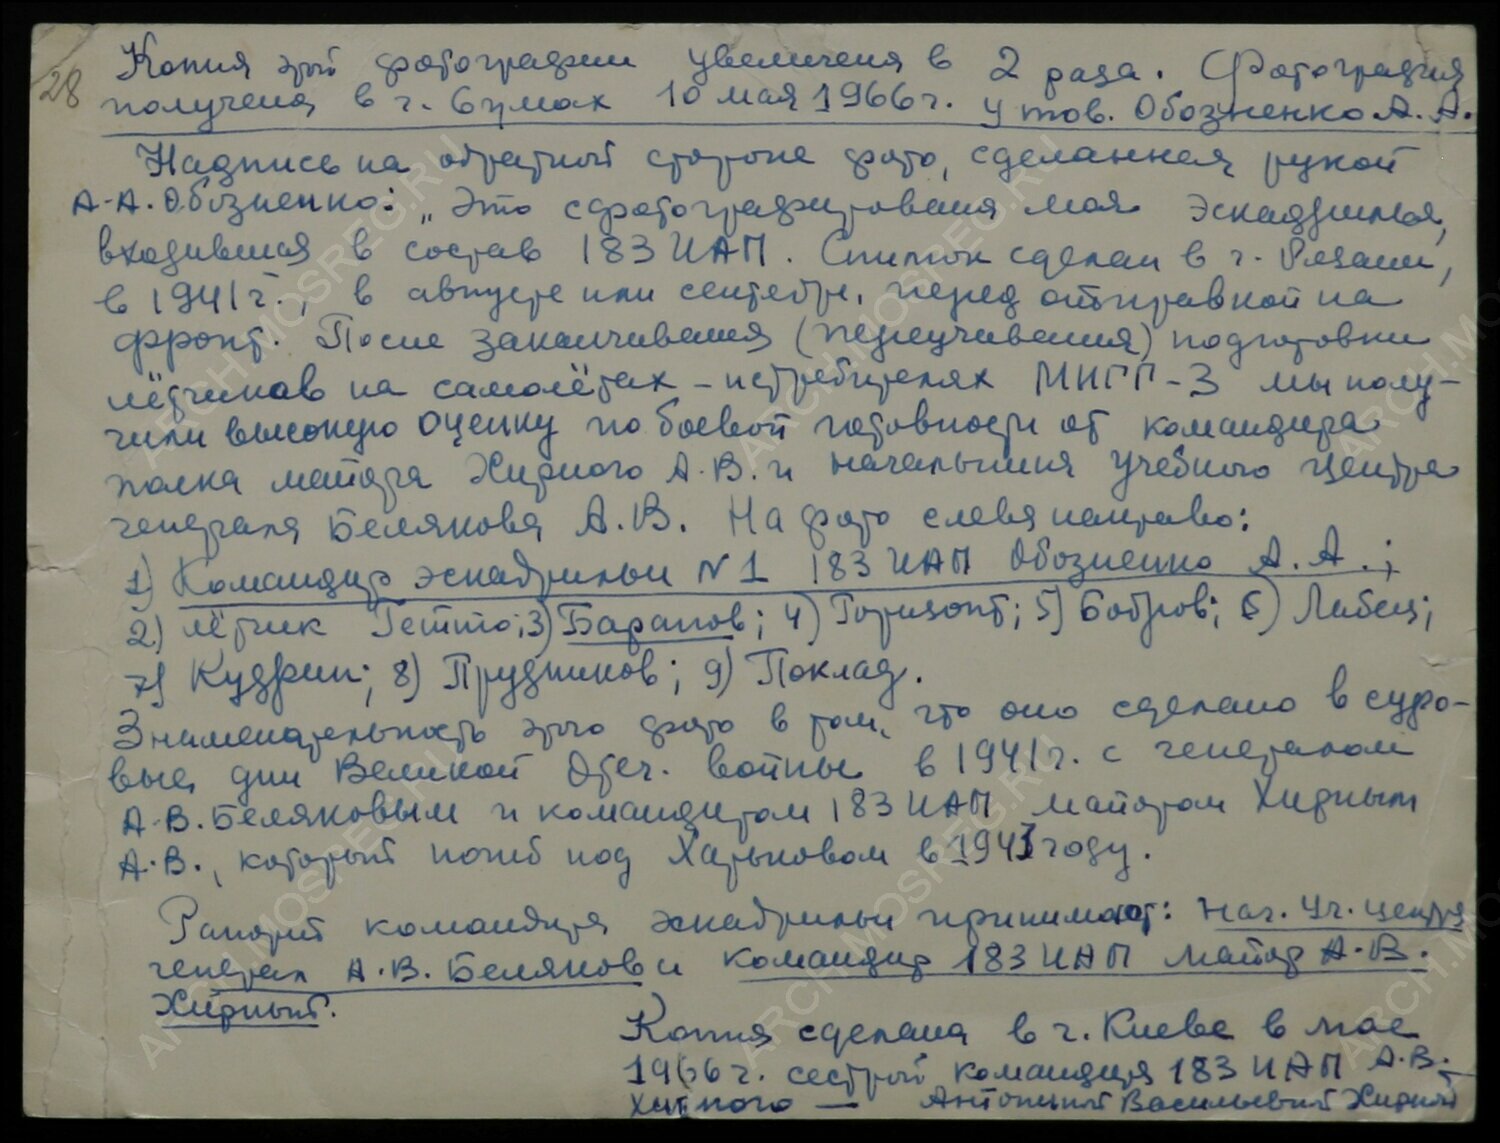 28
Копия этой фотографии увеличена в 2 раза. Фотография
получена в г. Сумах 10 мая 1966 г. у тов. Обозненко А. А.
Надпись на обратной стороне фото, сделанная рукой
А. А. Обозненко: „Это сфотографирована моя эскадрилья,
входившая в состав 183 ИАП. Снимок сделан в г. Рязани,
в 1941 г., в августе или сентябре, перед отправкой на
фронт. После заканчивания (переучивания) подготовки
лётчиков на самолётах - истребителях МИГГ-3 мы полу-
чили высокую оценку по боевой готовности от командира
полка майора Хирного А. В. и начальника учебного центра
генерала Белякова А. В. На фото слева направо:
1) Командир эскадрильи N 1 183 ИАП Обозненко А. А.;
2) лётчик 3) Баранов; 4) Горизонт; 5) Бобров; 6) Либец;
7) Кудрин; 8) Прудников; 9) Поклад.
Знаменательность этого фото в том, что оно сделано в суро-
вые дни Великой Отеч. войны в 1941 г. с генералом
А. В. Беляковым и командиром 183 ИАП майором Хирным
А. В., который погиб под Харьковом в 1943 году.
Рапорт командира эскадрильи принимают: Нач. Уч. центра
генерал А. В. Беляков и командир 183 ИАП майор А. В.
Хирный.
Копия сделана в г. Киеве в мае
1966 г. сестрой командира 183 ИАП А. В.
Хирного — Антониной Васильевной Хирной
ARCH.MOSREG.RU